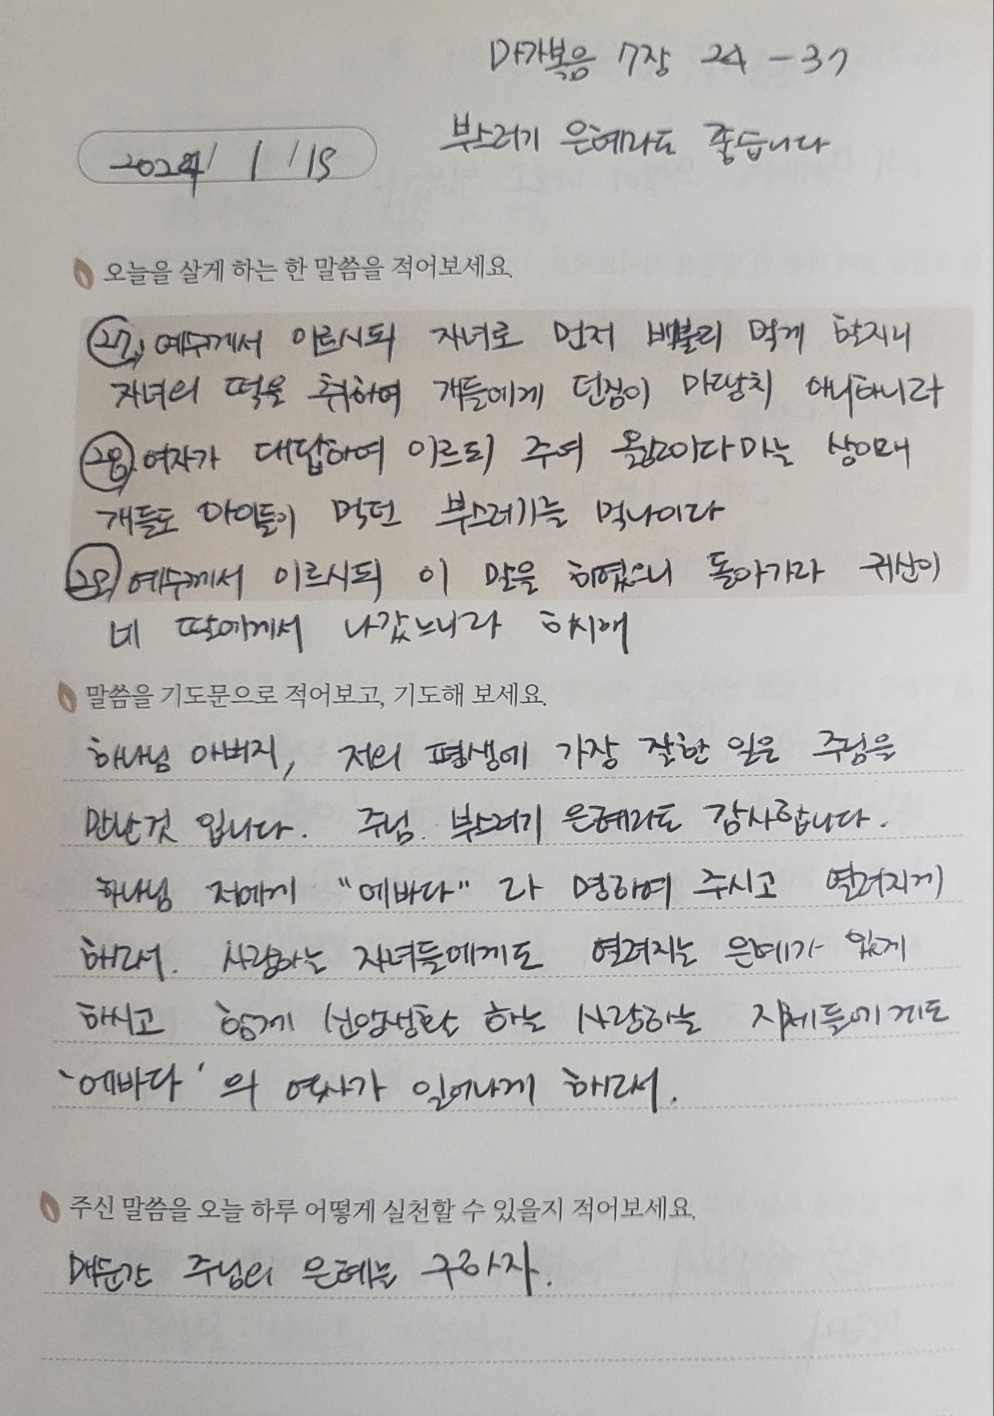 마가복음 7장 24-37
부스러기 은혜라도 좋습니다
2024/ 1 / 15
오늘을 살게 하는 한 말씀을 적어보세요.
27, 예수께서 이르시되 자녀로 먼저 배불리 먹게 할지니
자녀의 떡을 취하여 개들에게 던짐이 마땅치 아니하니라
28. 여자가 대답하여 이르되 주여 옳소이다마는 상아래
개들도 아이들이 먹던 부스러기를 먹나이다
29, 예수께서 이르시되 이 말을 하였으니 돌아가라 귀신이
네 딸에게서 나갔느니라 하시매
말씀을 기도문으로 적어보고, 기도해 보세요.
하나님 아버지, 저의 평생에 가장 잘한 일은 주님을
만난것 입니다. 주님. 부스러기 은혜라도 감사합니다.
하나님 저에게 "에바다" 라 명하여 주시고 열려지게
하소서. 사랑하는 자녀들에게도 열려지는 은혜가 있게
하시고 함께 신앙생활 하는 사랑하는 지체들에게도
'에바다'의 역사가 일어나게 하소서.
주신 말씀을 오늘 하루 어떻게 실천할 수 있을지 적어보세요.
매순간 주님의 은혜를 구하자.